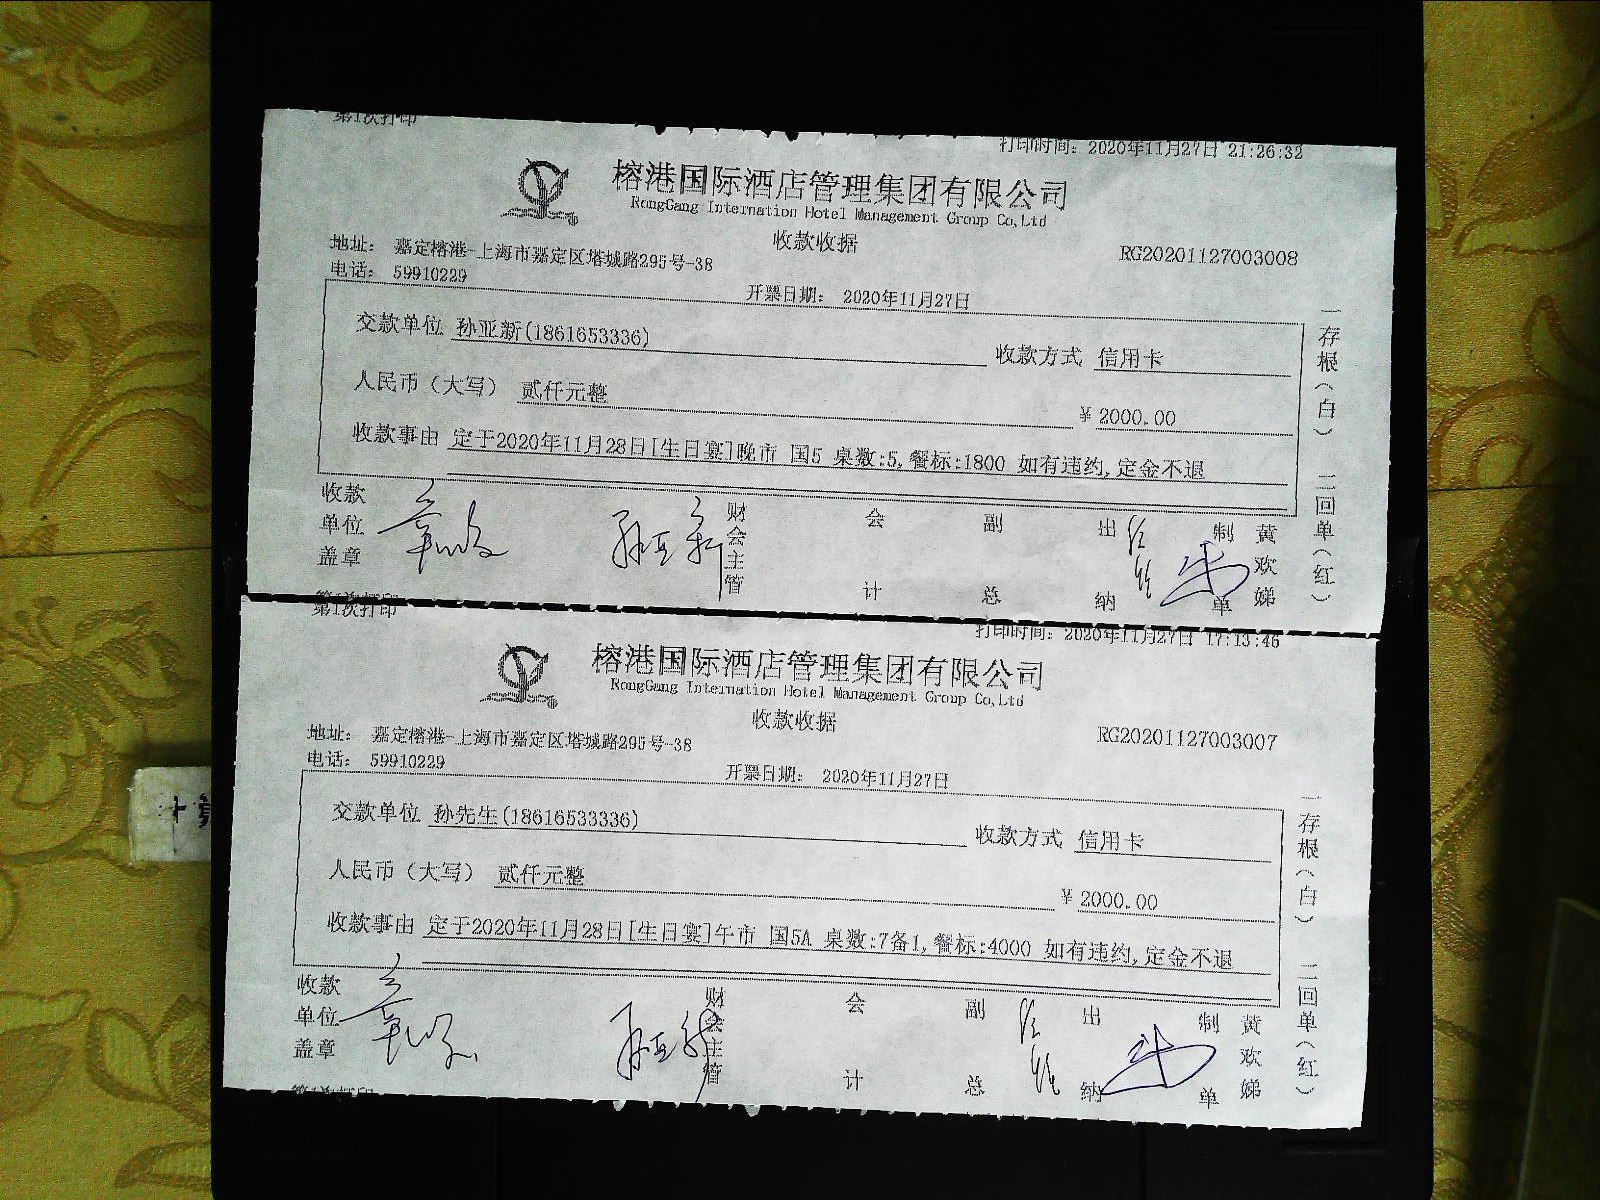 第1次打印
打印时间：2020年11月27日 21:26:32
榕港国际酒店管理集团有限公司
RongGang Internation Hotel Management Group Co,Ltd
收款收据
地址： 嘉定榕港-上海市嘉定区塔城路295号-38
RG20201127003008
电话： 59910229
开票日期： 2020年11月27日
交款单位 孙亚新(1861653336)
收款方式 信用卡
人民币（大写） 贰仟元整
￥2000.00
收款事由 定于2020年11月28日[生日宴]晚市 国5 桌数:5,餐标:1800 如有违约,定金不退
一存根（白） 二回单（红）
收款单位盖章
孙亚新
财会主管
会计
副总
出纳
制单
黄欢娣
第1次打印
打印时间：2020年11月27日 17:13:46
榕港国际酒店管理集团有限公司
RongGang Internation Hotel Management Group Co,Ltd
收款收据
地址： 嘉定榕港-上海市嘉定区塔城路295号-38
RG20201127003007
电话： 59910229
开票日期： 2020年11月27日
交款单位 孙先生(18616533336)
收款方式 信用卡
人民币（大写） 贰仟元整
￥2000.00
收款事由 定于2020年11月28日[生日宴]午市 国5A 桌数:7备1,餐标:4000 如有违约,定金不退
一存根（白） 二回单（红）
收款单位盖章
孙亚新
财会主管
会计
副总
出纳
制单
黄欢娣
第1次打印